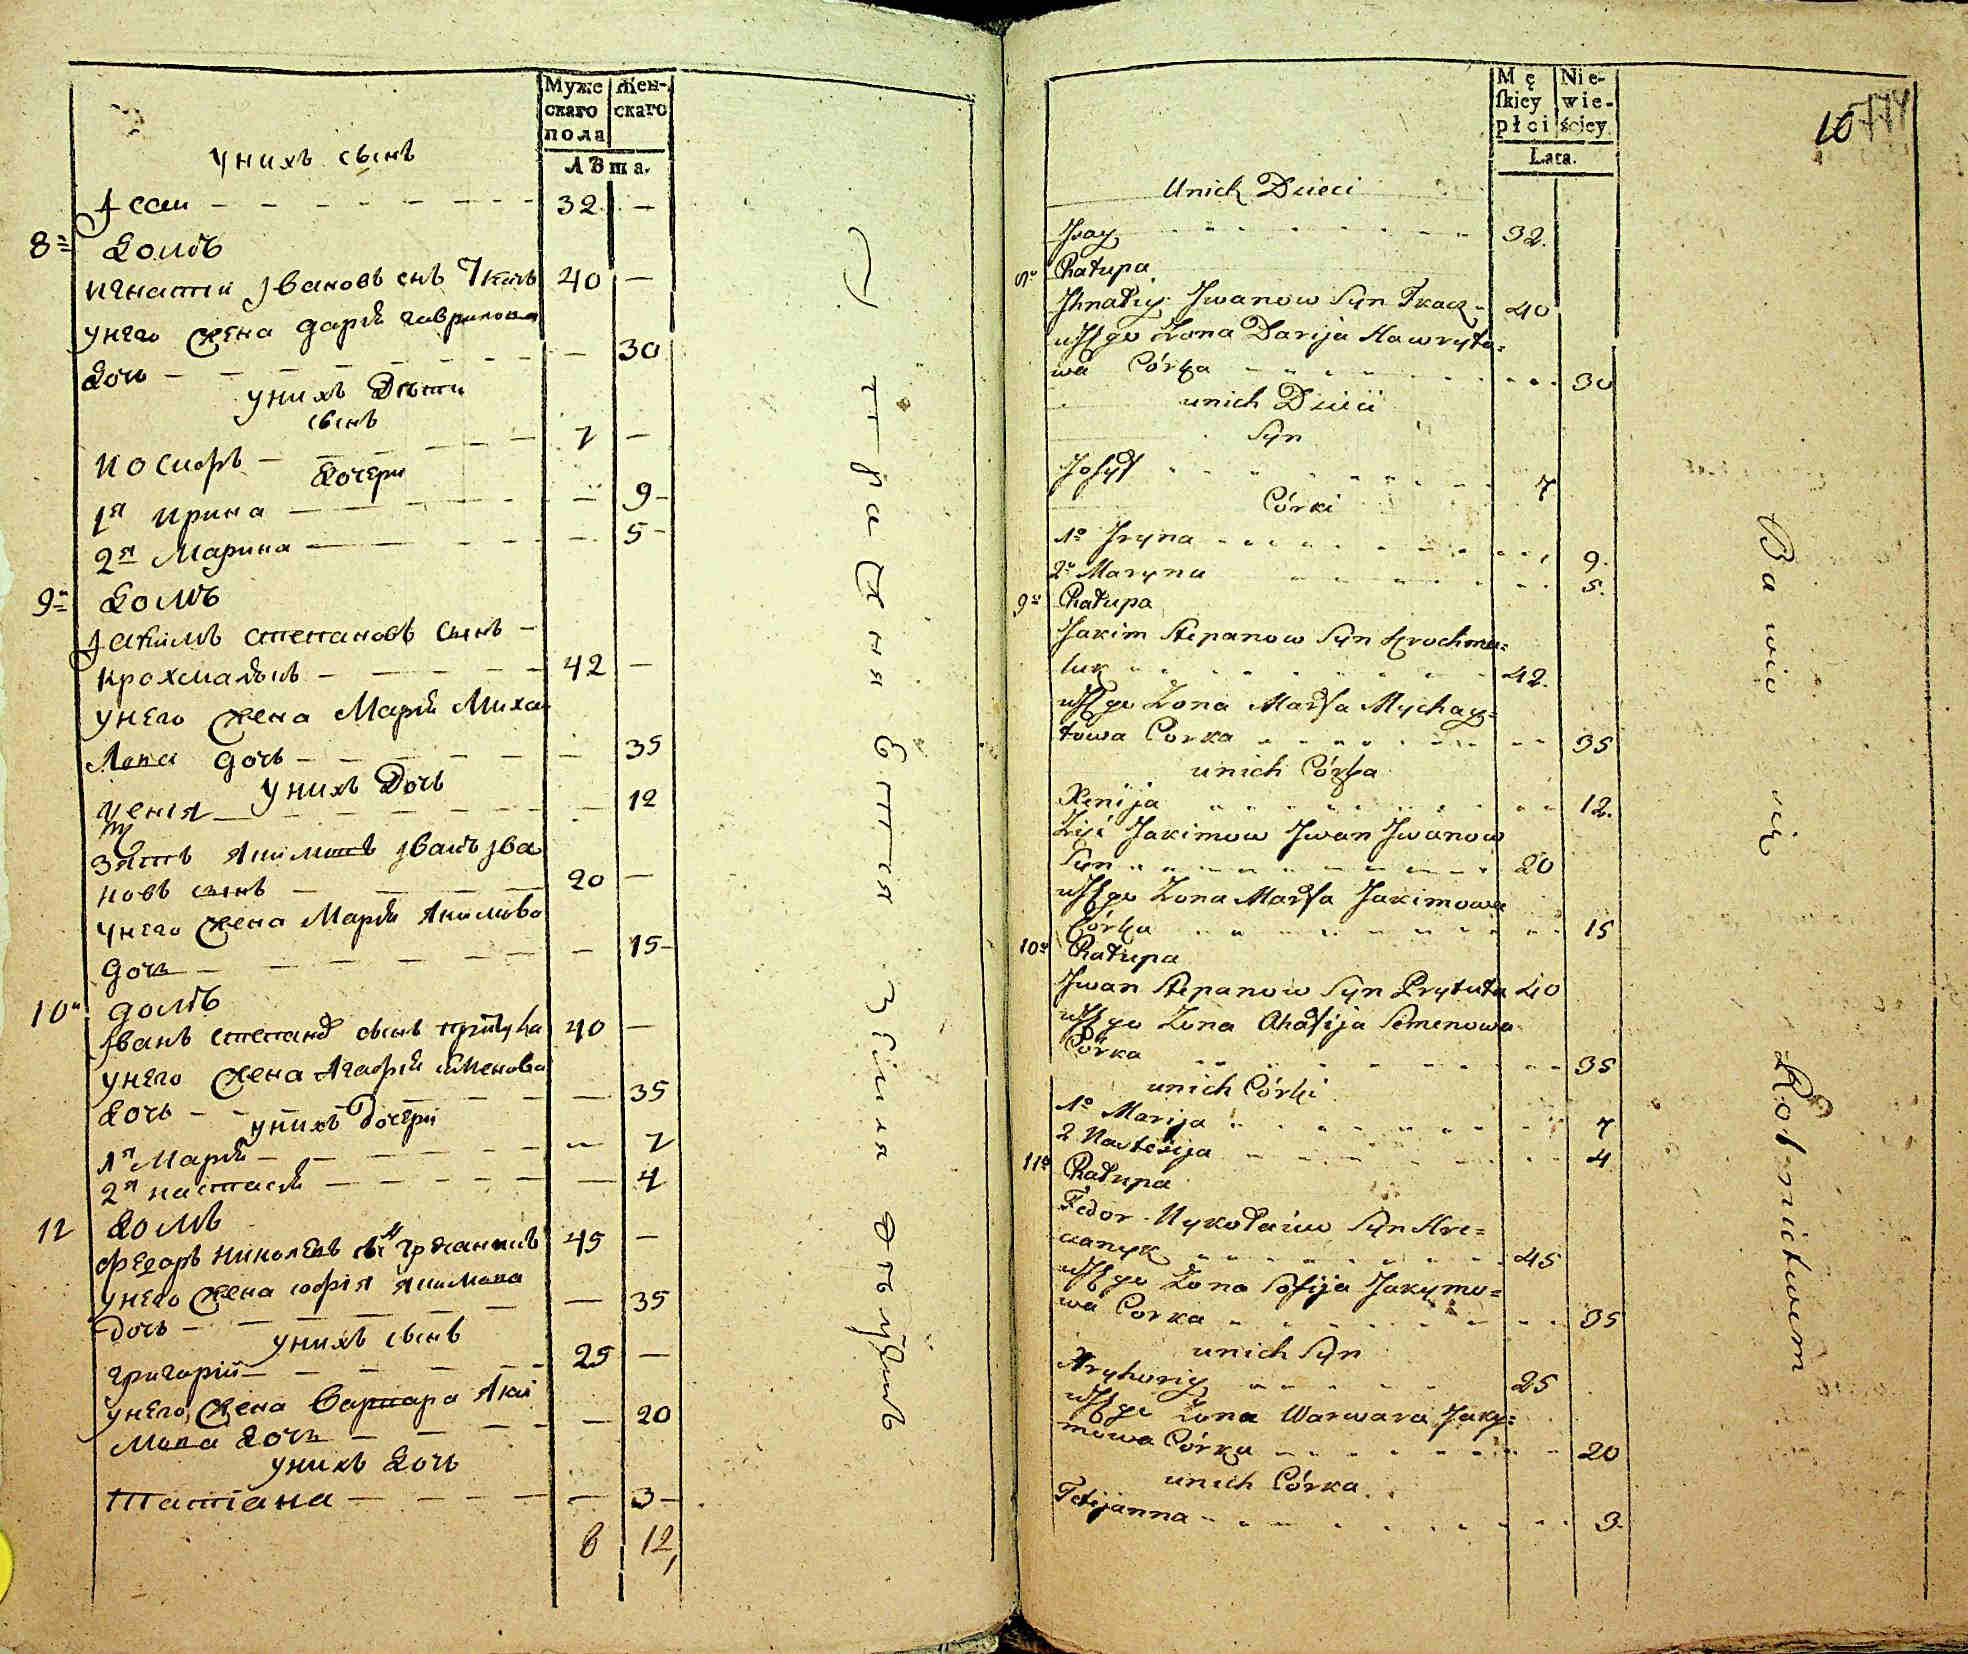 Муже
скаго
пола
Жен-
скаго
Лѣта.
у нихъ сынъ
Исаи 32 —
8 Домъ
Игнатій Ивановъ снъ Ткачъ 40 —
у него жена Дарїя Гаврилова
дочь — 30
у нихъ Дѣти
сынъ
Иосифъ 7 —
дочери
1я Ирина — 9
2я Марина — 5
9 Домъ
Іакимъ Степановъ сынъ
Крохмалюкъ 42 —
у него жена Марѳа Миха
лова дочь — 35
у нихъ дочь
Ксенія — 12
Зять Якимовъ Иванъ Ива
новъ сынъ 20 —
у него жена Марѳа Якимова
дочь — 15
10 домъ
Иванъ Степановъ сынъ Притула 40 —
у него жена Агафїя Семенова
дочь — 35
у нихъ дочери
1я Марїя — 7
2я Настасїя — 4
12 Домъ
Федоръ Николаевъ снъ Гречаникъ 45 —
у него жена Софія Якимова
дочь — 35
у нихъ сынъ
Григорій 25 —
у него жена Варвара Яки
мова дочь — 20
у нихъ дочь
Татіана — 3
8 12
упражняется Землядѣлїемъ
10
Mę
ſkiey
płci
Nie-
wie-
ściey
Lata.
U nich Dzieci
Isay 32.
8o Chałupa
Ihnatiy Iwanow Syn Tkacz 40
u Jego Zona Darija Hawryło=
wa Córka 30
u nich Dzieci
Syn
Josyf 7
Córki
1o Iryna 9.
2o Maryna 5.
9o Chałupa
Jakim Stepanow Syn Krochma=
luk 42.
u Jego Zona Marfa Mychay=
łowa Corka 35
u nich Córka
Xenija 12.
Zięć Jakimow Iwan Iwanow
Syn 20
u Jego Zona Marfa Jakimowa
Córka 15
10o Chałupa
Iwan Stepanow Syn Prytuła 40
u Jego Zona Ahafija Semenowa
Córka 35
u nich Córki
1o Marija 7
2 Nastesija 4
11o Chałupa
Fedor Mykołaiow Syn Hre=
czanyk 45
u Jego Zona Sofija Jakymo=
wa Corka 35
u nich Syn
Hryhoriy 25
u Jego Zona Warwara Jaky=
mowa Córka 20
u nich Córka
Tetijanna 3.
Bawio się Rolnictwem